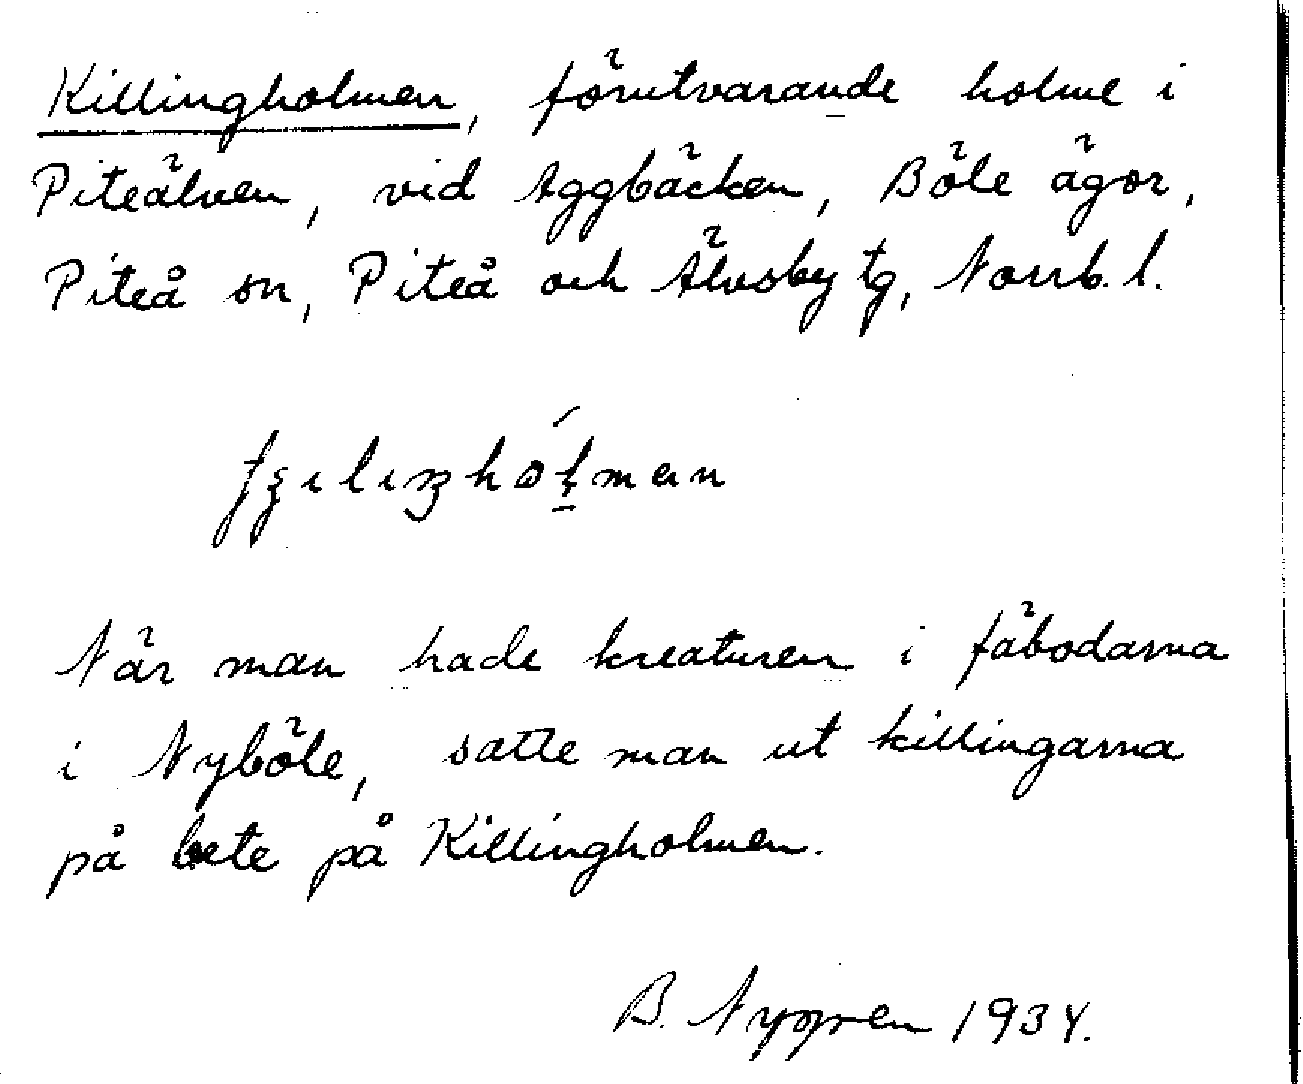 Killingholmen, förutvarande holme i
Piteälven, vid Aggbäcken, Böle ägor,
Piteå sn, Piteå och Älvsby tg, Norrb. l.
När man hade kreaturen i fäbodarna
i Nyböle, satte man ut killingarna
på bete på Killingholmen.
B. Nygren 1934.